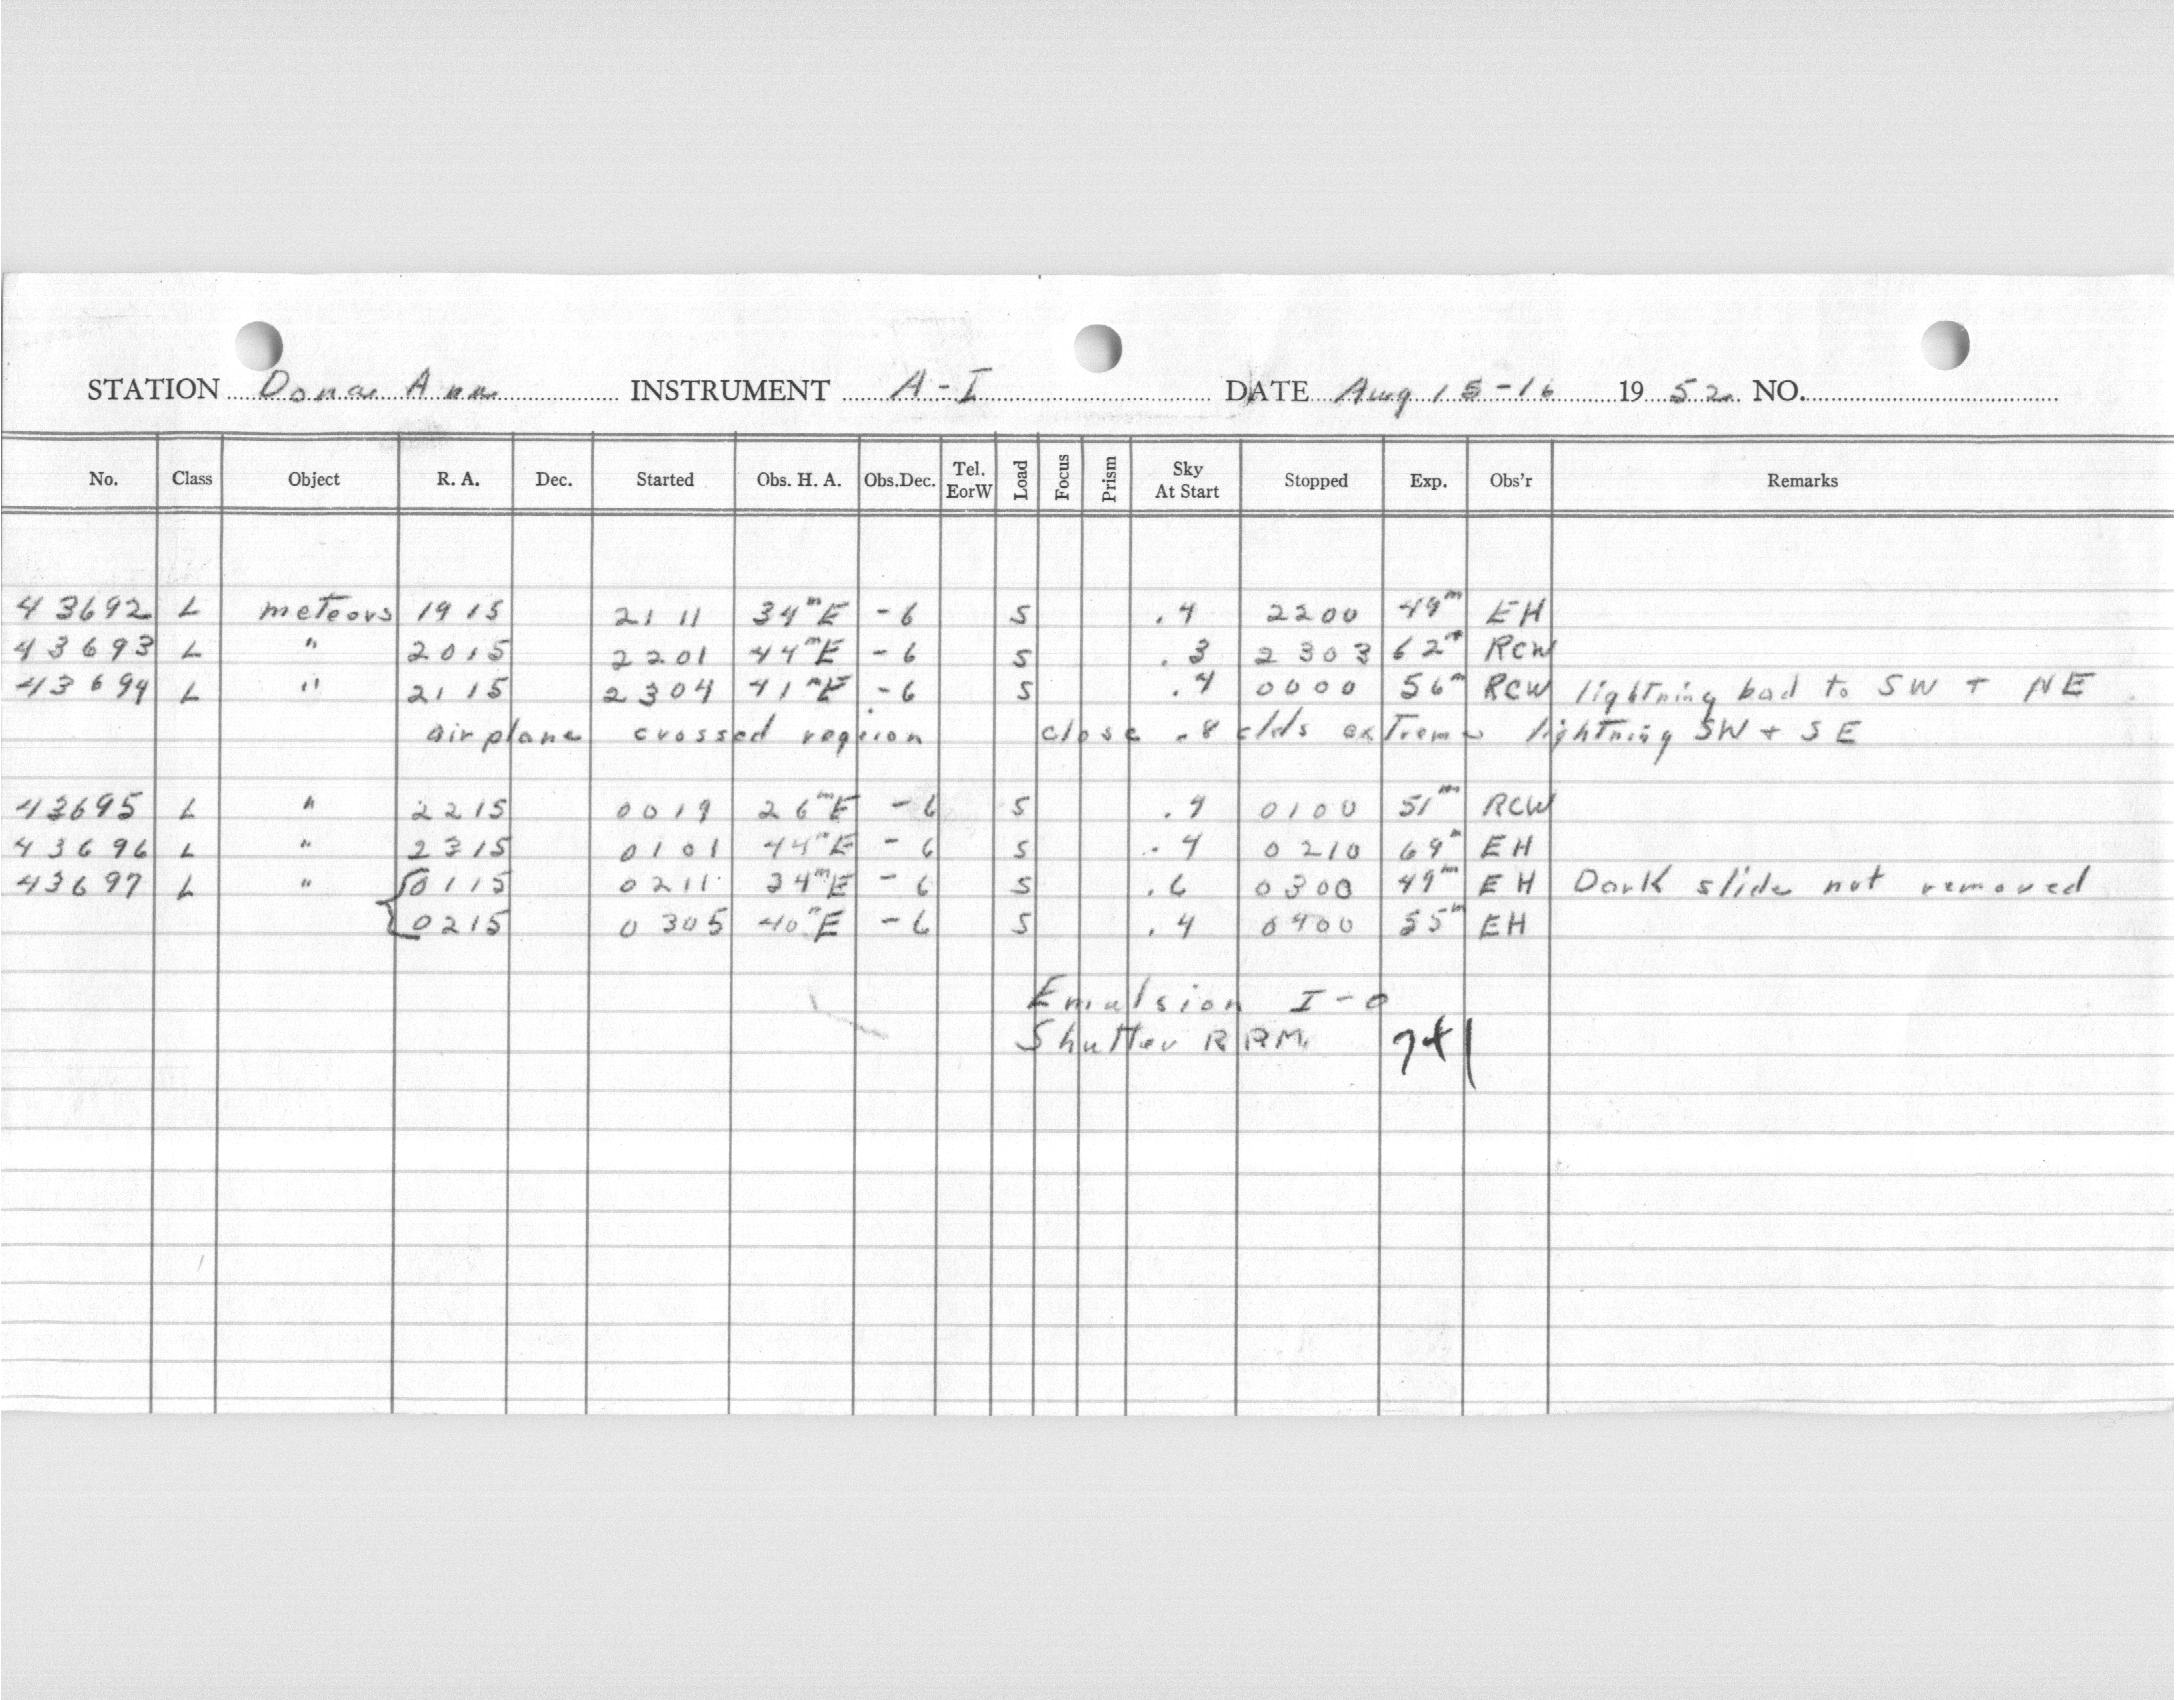 STATION Dona Ana INSTRUMENT A-I DATE Aug 15-16 1952 NO.
No. Class Object R. A. Dec. Started Obs. H. A. Obs.Dec. Tel. EorW Load Focus Prism Sky At Start Stopped Exp. Obs'r Remarks
43692 L meteors 1915 2111 34mE -6 S .4 2200 49m EH
43693 L " 2015 2201 44mE -6 S .3 2303 62m RCW
43694 L " 2115 2304 41mE -6 S .4 0000 56m RCW lightning bad to SW + NE
airplane crossed region close .8 clds extreme lightning SW + SE
43695 L " 2215 0019 26mE -6 S .4 0100 51m RCW
43696 L " 2315 0101 44mE -6 S .4 0210 69m EH
43697 L " 0115 0211 34mE -6 S .6 0300 49m EH Dark slide not removed
0215 0305 40mE -6 S .4 0400 55m EH
Emulsion I-O
Shutter RPM